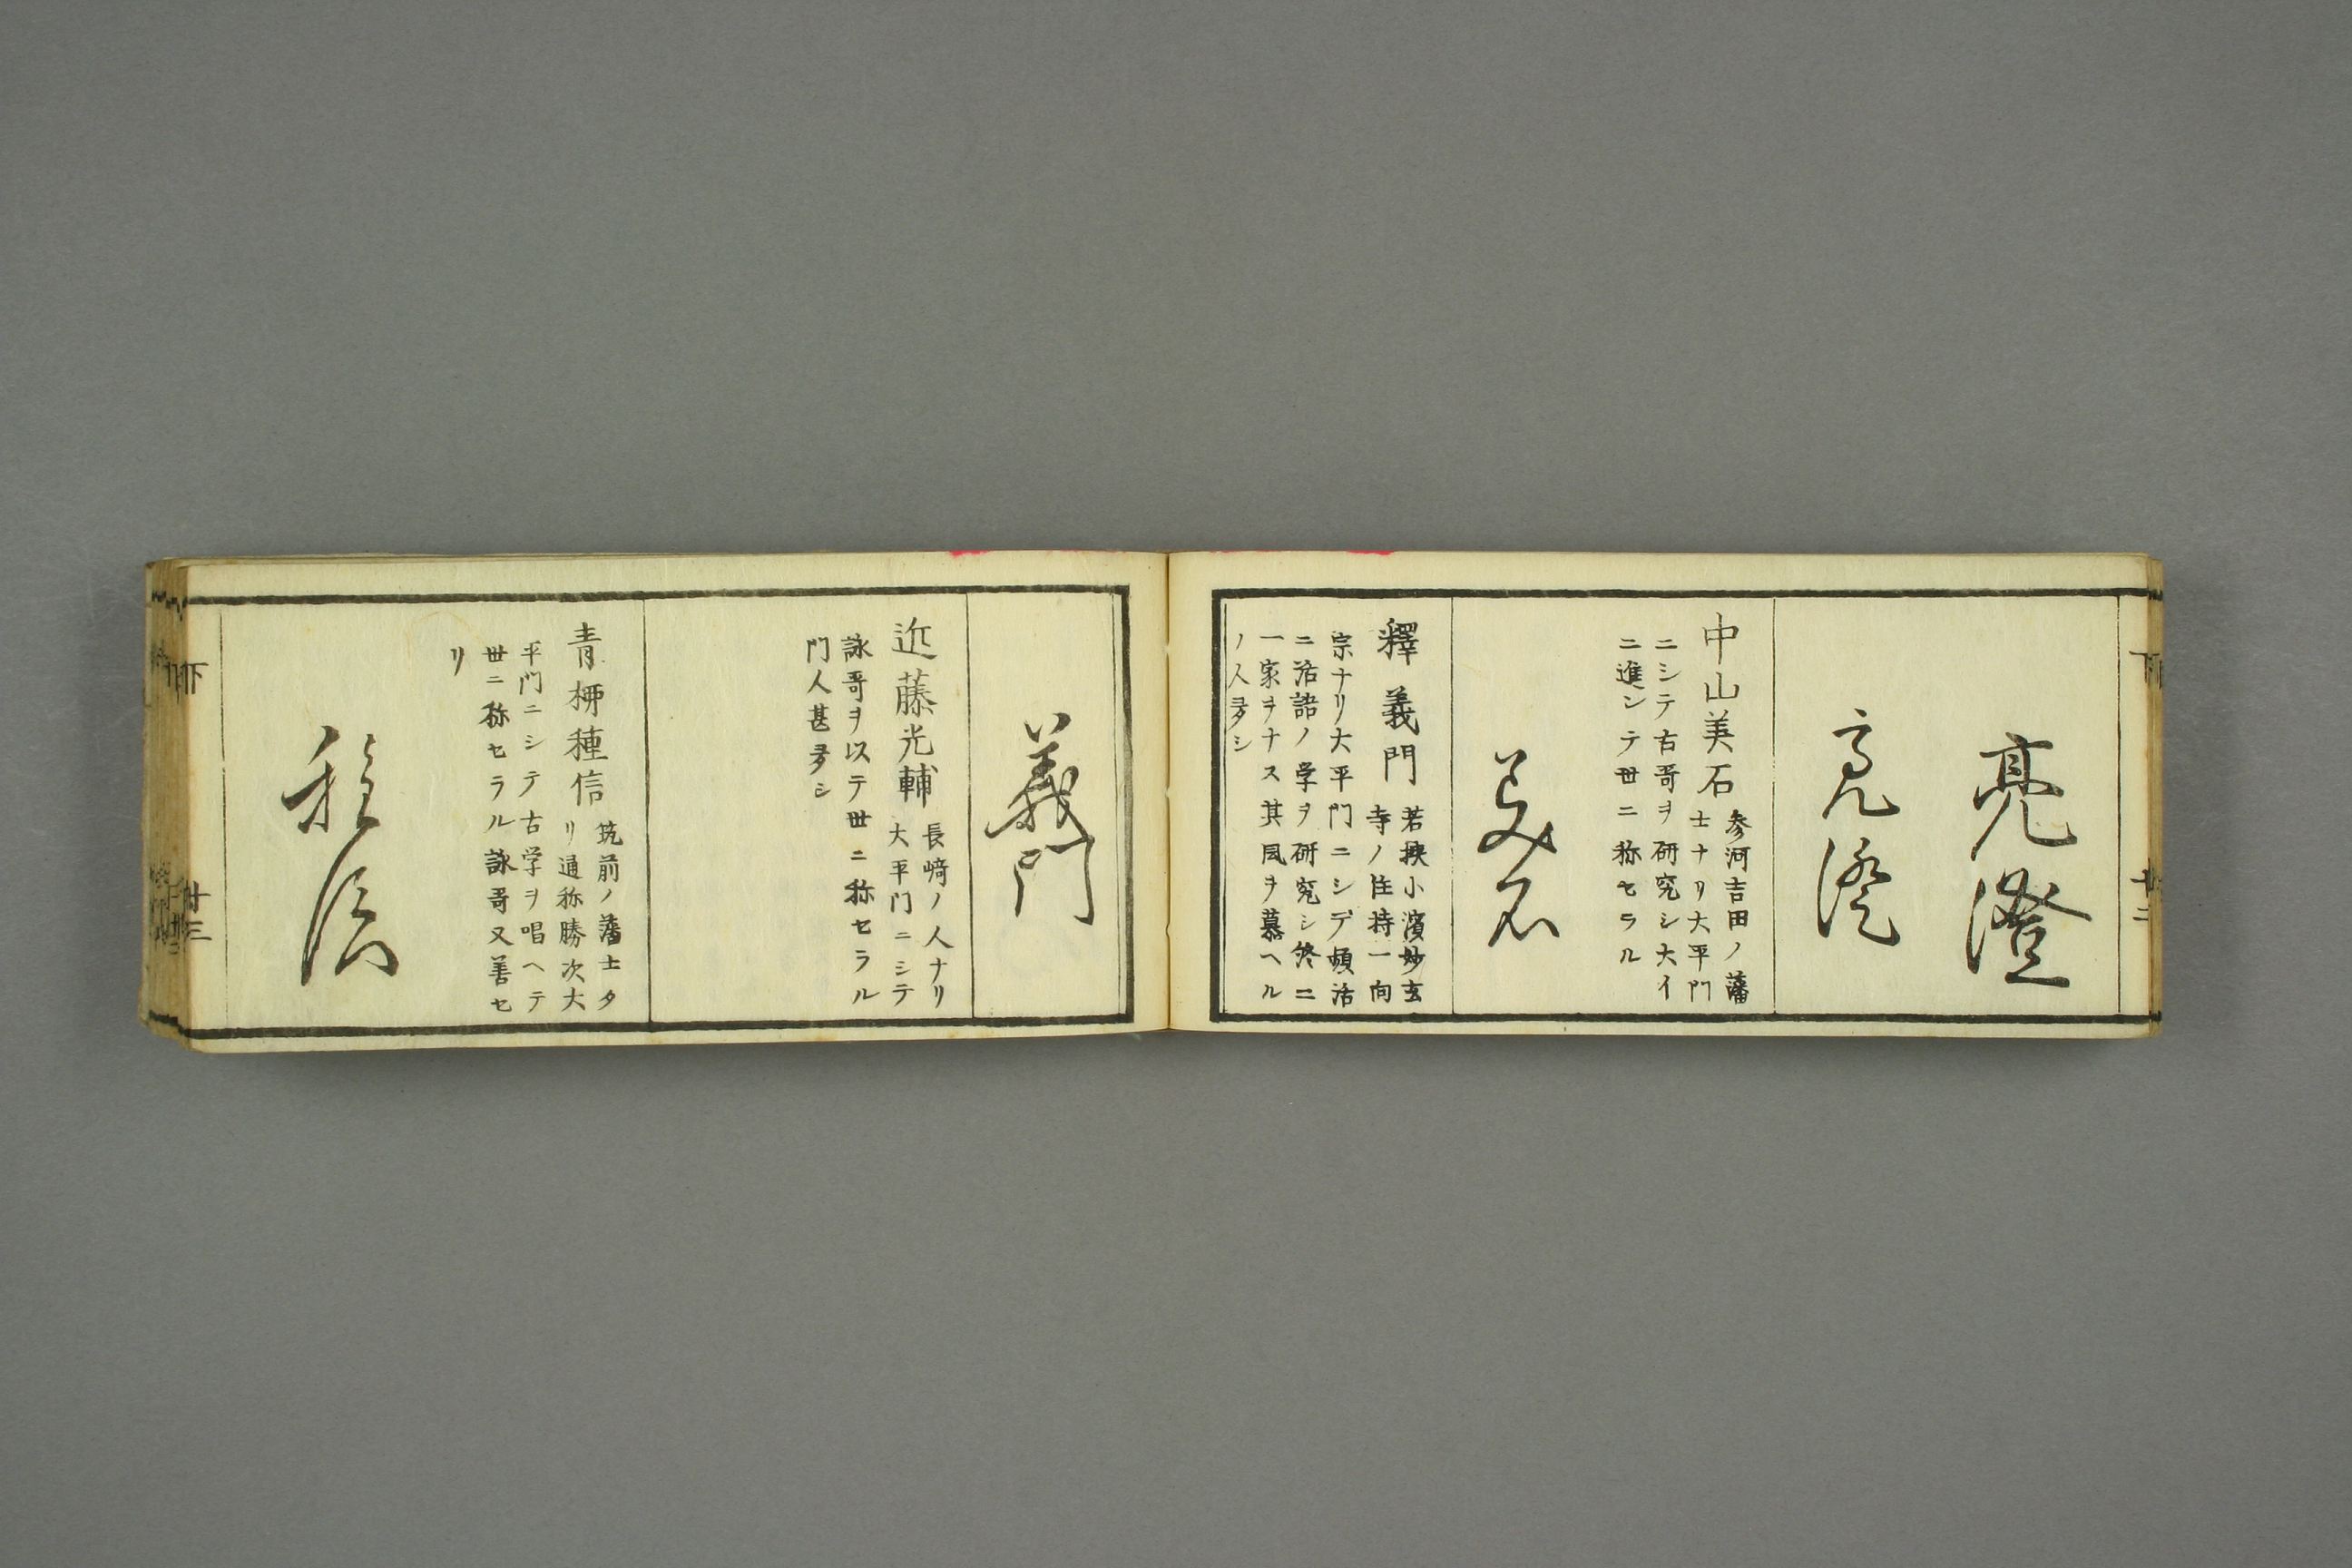 亮澄
亮澄
中山美石
参河吉田ノ藩
士ナリ大平門
ニシテ古哥ヲ研究シ大イ
ニ進ンテ世ニ称セラル
美石
釋義門
若挾小濱妙玄
寺ノ住持一向
宗ナリ大平門ニシテ頗活
ニ活語ノ学ヲ研究シ終ニ
一家ヲナス其風ヲ慕ヘル
ノ人多シ
義門
近藤光輔
長﨑ノ人ナリ
大平門ニシテ
詠哥ヲ以テ世ニ称セラル
門人甚多シ
青栁種信
筑前ノ藩士タ
リ通称勝次大
平門ニシテ古学ヲ唱ヘテ
世ニ称セラル詠哥又善セ
リ
種信
下
廿三